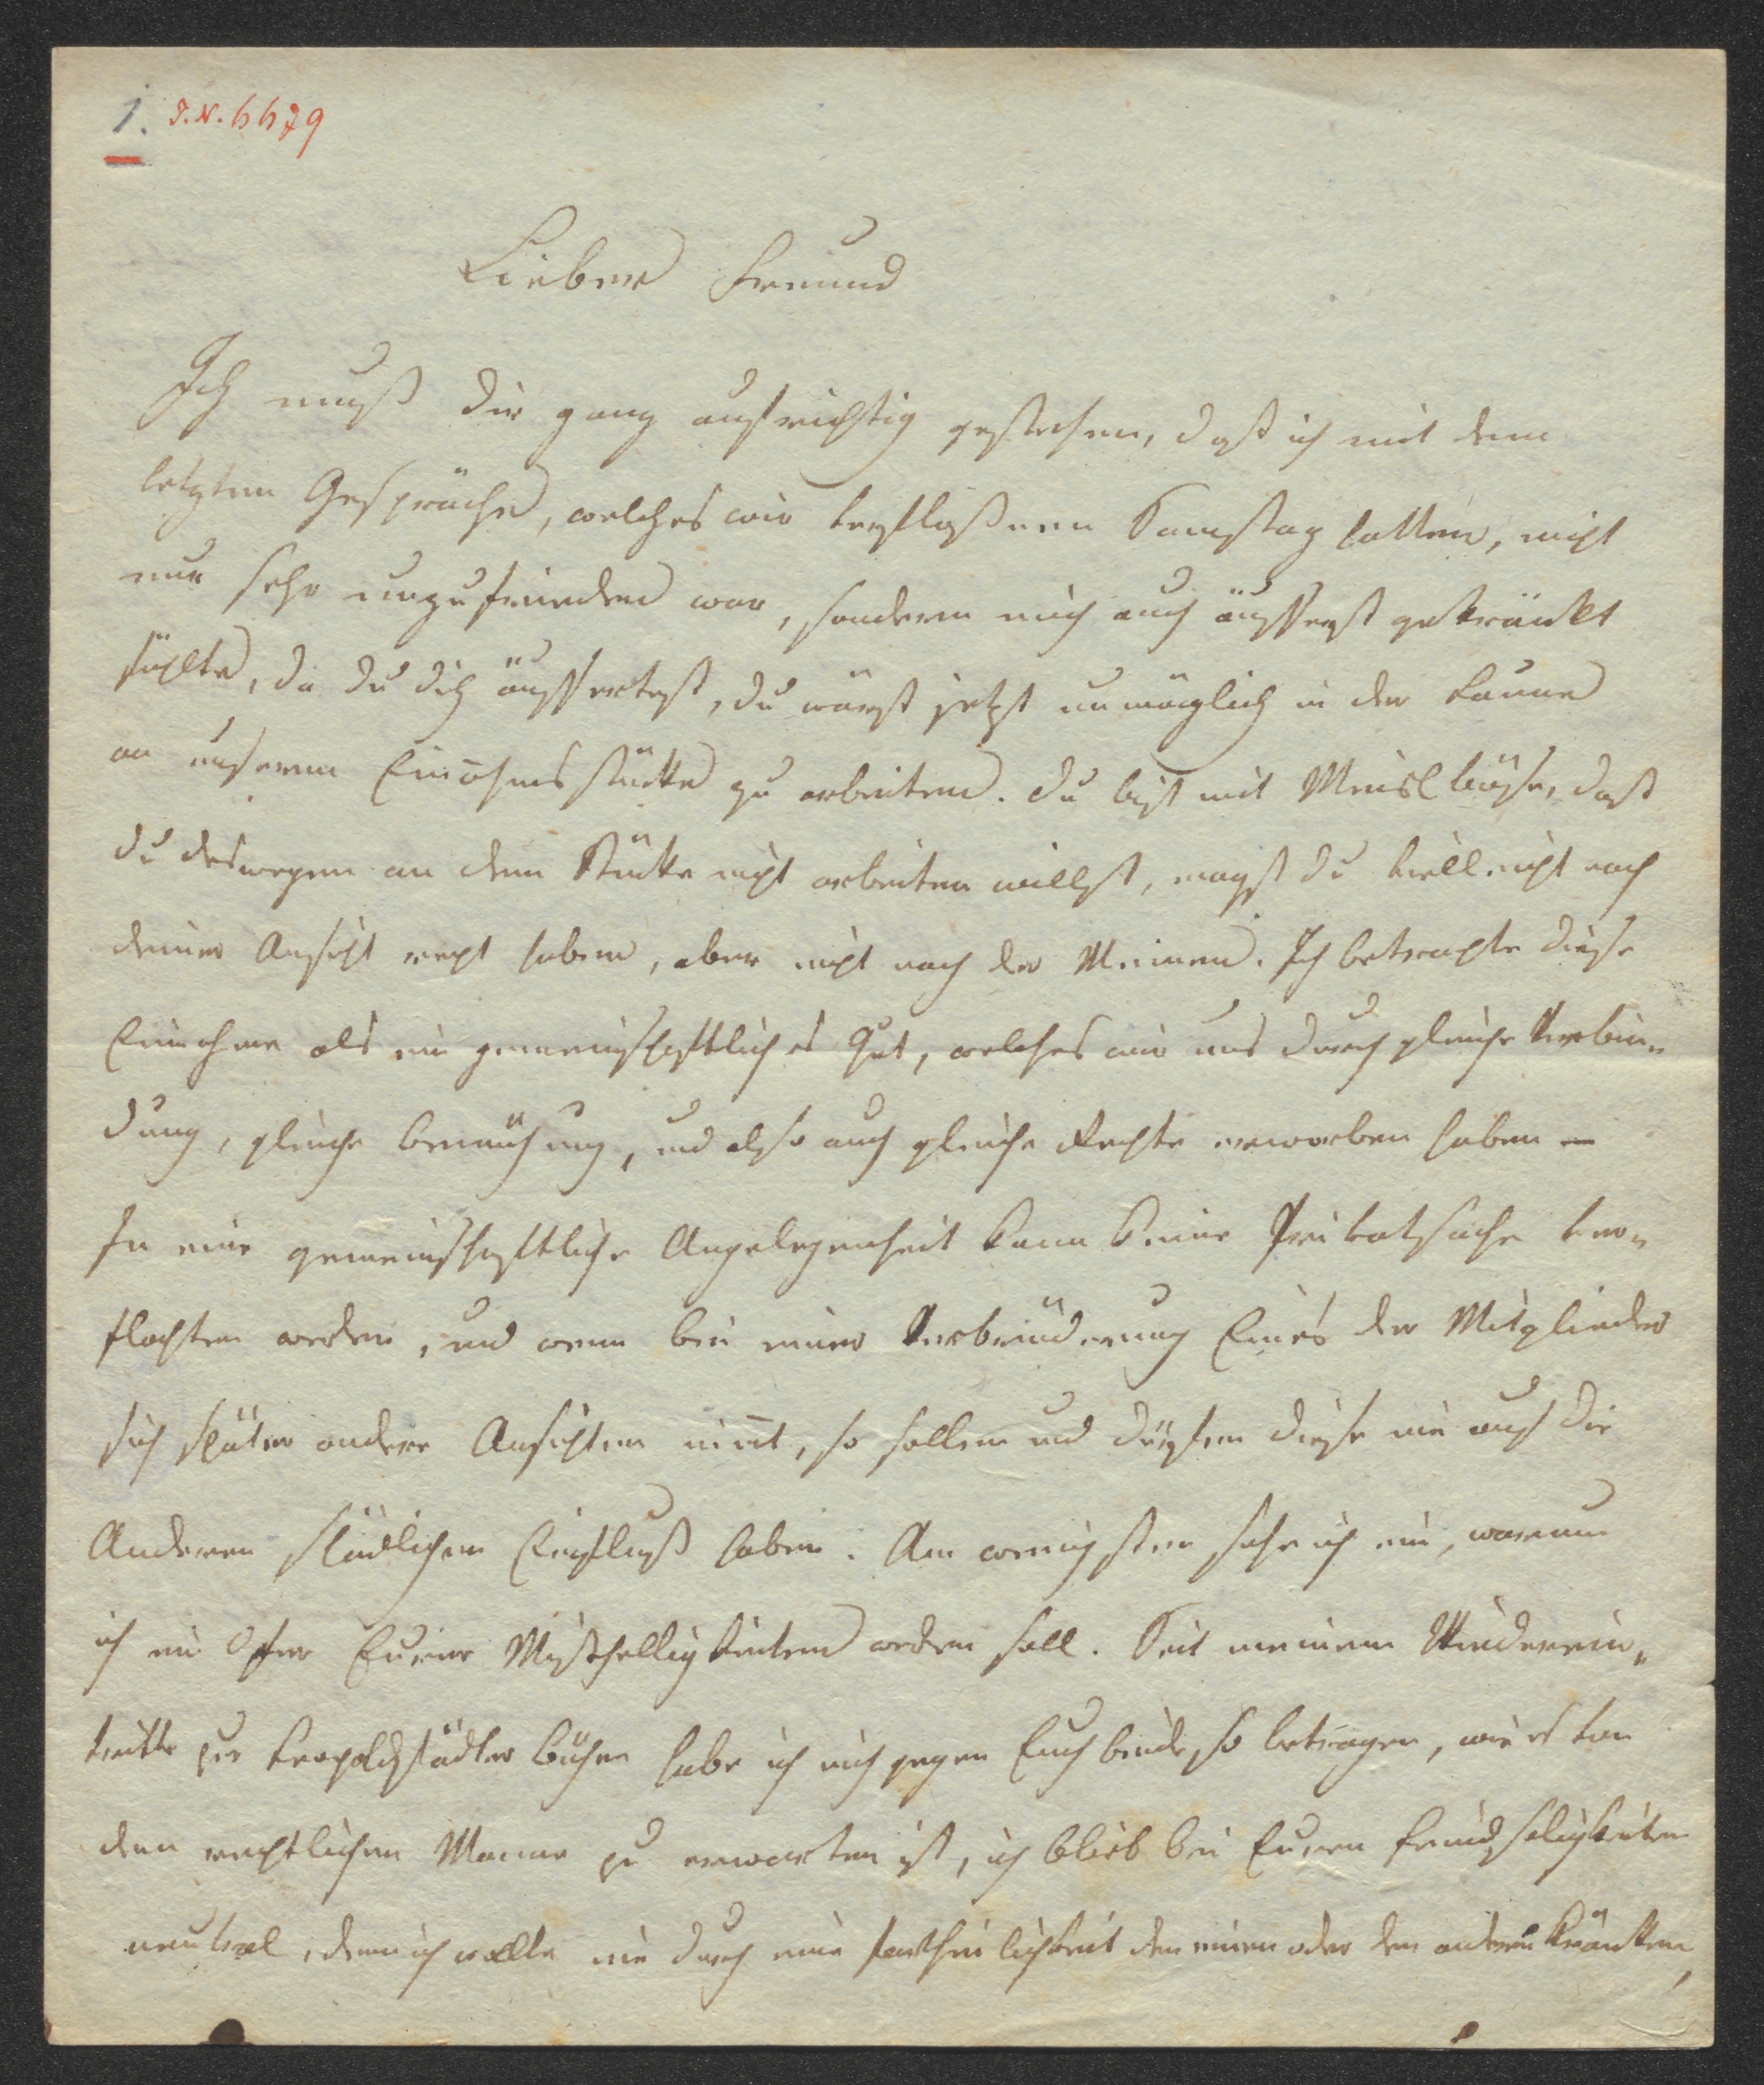 1. J.N. 6679
Lieber Freund
Ich muß dir ganz aufrichtig gestehen, daß ich mit dem
letzten Gespräche, welches wir verfloßenen Samstag hatten, nicht
nur sehr unzufrieden war, sondern mich auch äusserst gekränkt
fühlte, da du dich äussertest, du wärst jetzt unmöglich in der Laune
an unserem Einnahmsstücke zu arbeiten. Du bist mit Meisl böse, daß
du deswegen an dem Stücke nicht arbeiten willst, magst du vielleicht nach
deiner Ansicht recht haben, aber nicht nach der Meinen. Ich betrachte diese
Einnahme als ein gemeinschaftliches Gut, welches wir uns durch gleiche Verbin„
dung, gleiche Bemühung, und also auch gleiche Rechte erworben haben –
In eine gemeinschaftliche Angelegenheit kann keine Privatsache ver„
flochten werden, und wenn bei einer Verbrüderung Eines der Mitglieder
sich später andere Ansichten nimt, so sollen und dürfen diese nie auf die
Anderen schädlichen Einfluß haben. Am wenigsten sehe ich ein, warum
ich ein Opfer Eurer Mißhelligkeiten werden soll. Seit meinem Wiederein„
tritte zur Leopoldstädter Bühne habe ich mich gegen Euch beide so betragen, wie es von
dem rechtlichen Manne zu erwarten ist, ich blieb bei Euren Feindseligkeiten
neutral, denn ich wollte nie durch eine Partheilichkeit den einen oder den anderen kränken,